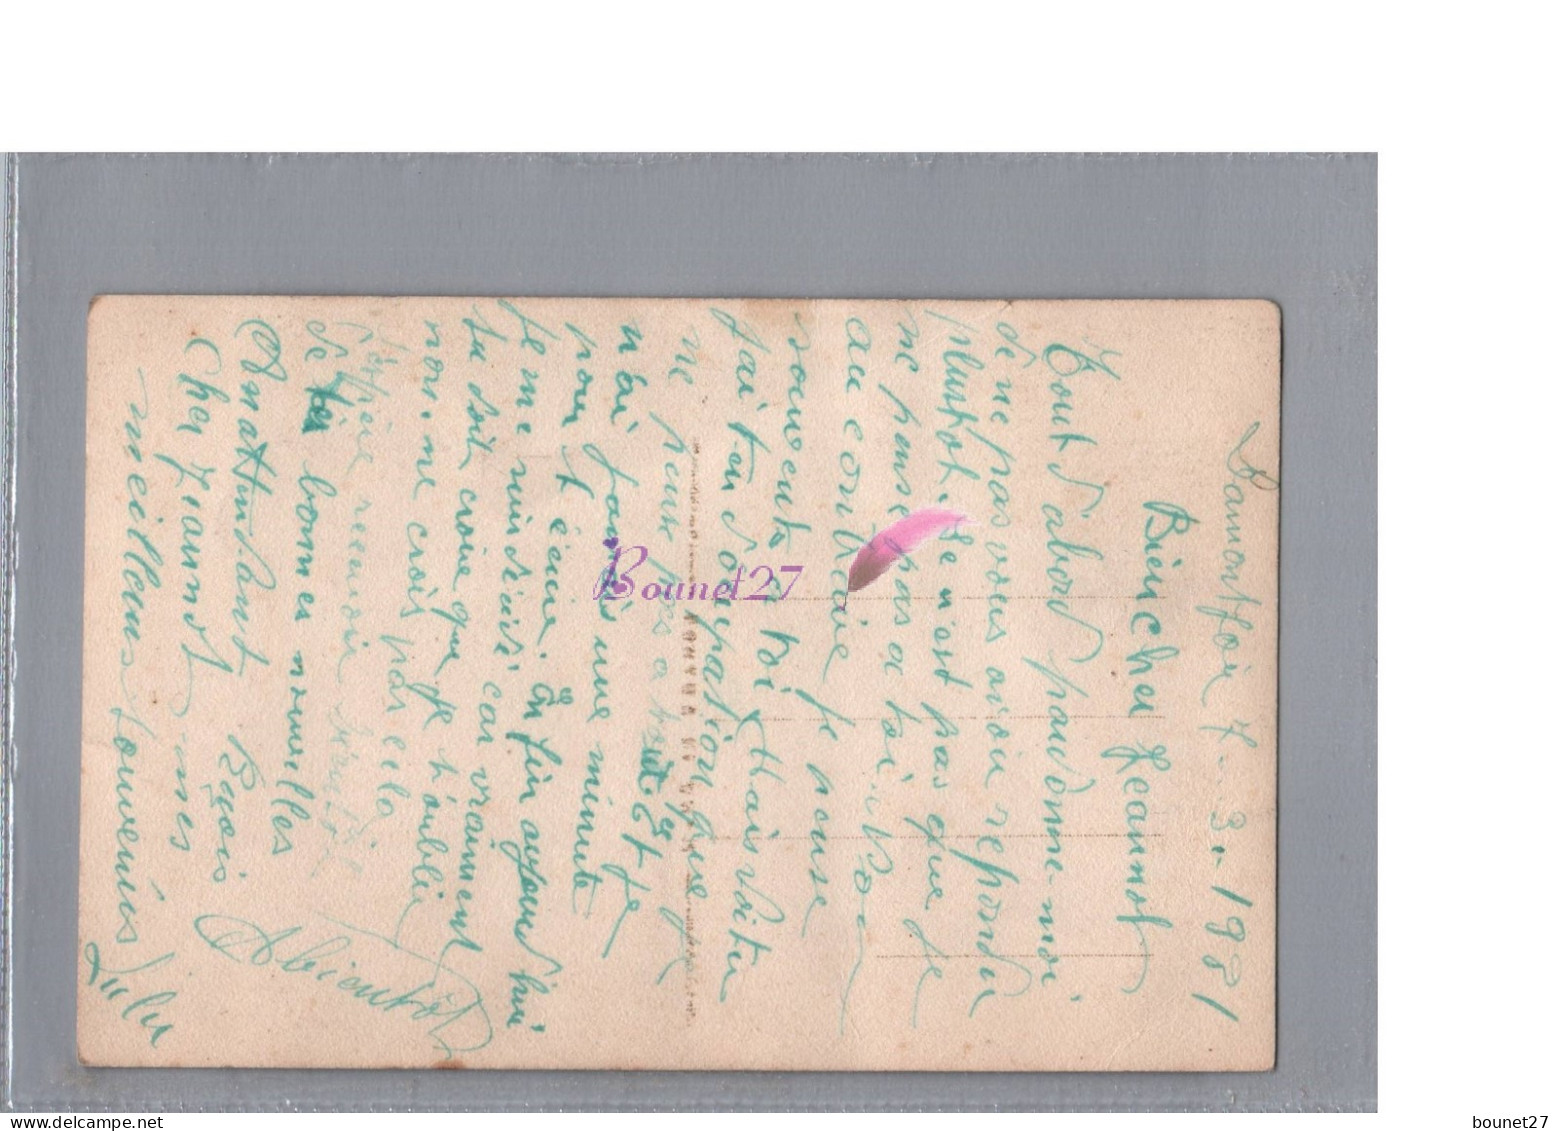 Lamontjoie 7-3-1931
Bien cher Jeannot
Tout d'abord pardonne-moi
de ne pas vous avoir repondu
plustôt. Se n'est pas que je
ne panse pas a toi. Non
au contraire je panse
souvent a toi Mais voi tu
j'ai ten d'oucupation que je
ne panse pas a tout Et je
n'ai jamais une minute
pour t'écrire En fin aujourd'hui
je me suis déci car vraiment
tu doit croire que je t'oublie
non. ne crois pas cela
J'espère recevoir
de bonnes nouvelles
En attendant Reçois
Cher Jeannot mes
meilleurs souvenirs
Abientôt
Lulu
Bounet27
www.delcampe.net
bounet27